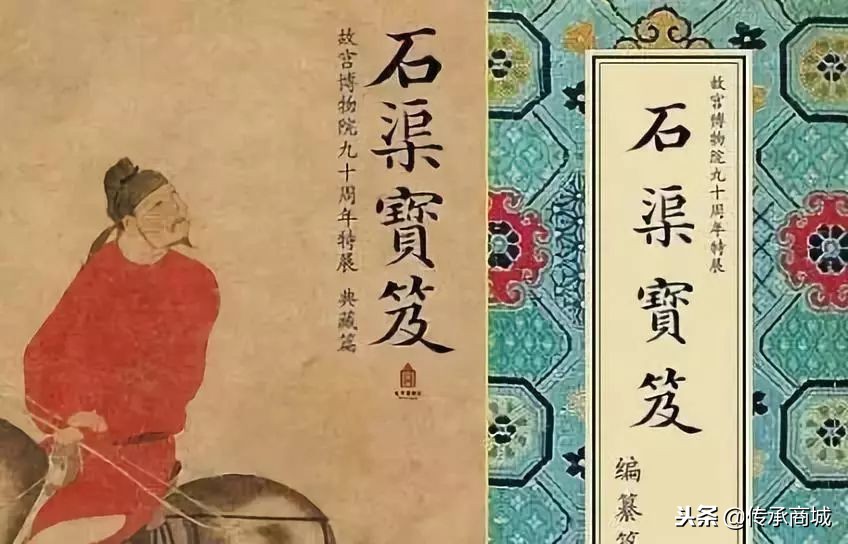 石渠寶笈
故宫博物院九十周年特展 典藏篇
故宫博物院九十周年特展
石渠寶笈
编纂篇
头条 @传承商城